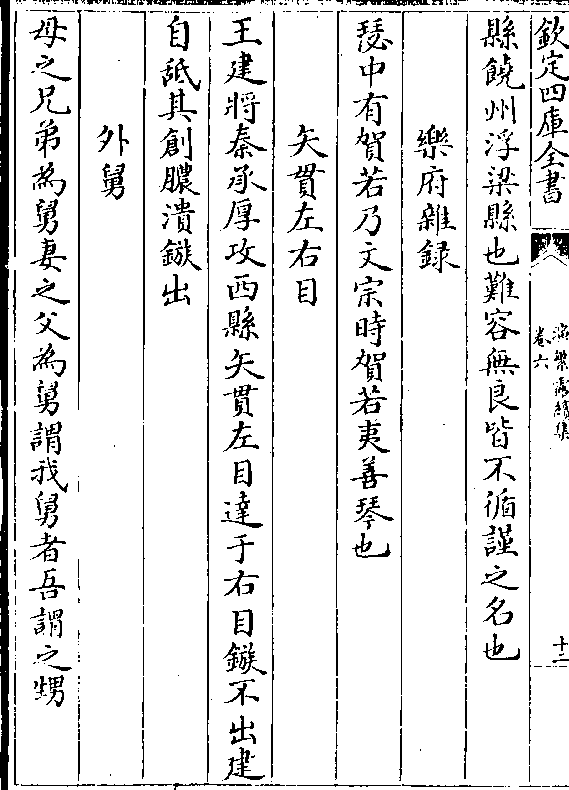 欽定四庫全書
演繁露續集
卷六
十二
縣饒州浮梁縣也難容無良皆不循謹之名也
樂府雜録
琴中有賀若乃文宗時賀若夷善琴也
矢貫左右目
王建將秦承厚攻西縣矢貫左目達于右目鏃不出建
自舐其創膿潰鏃出
外舅
母之兄弟為舅妻之父為舅謂我舅者吾謂之甥